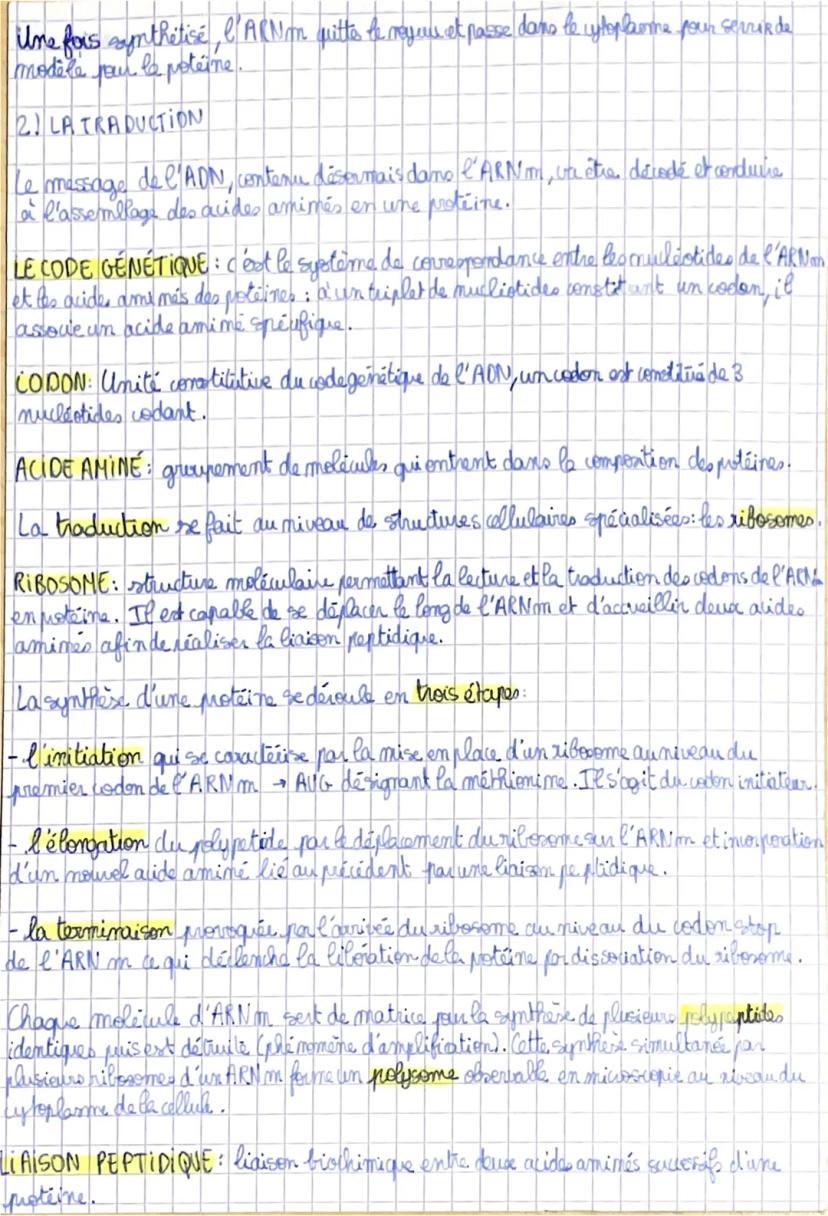 Une fois synthétisé, l'ARNm quitte le noyau et passe dans le cytoplasme pour servir de
modèle pour la protéine.
2) LA TRADUCTION
Le message de l'ADN, contenu désormais dans l'ARNm, va être décodé et conduire
à l'assemblage des acides aminés en une protéine.
LE CODE GÉNÉTIQUE : c'est le système de correspondance entre les nucléotides de l'ARNm
et les acides aminés des protéines : à un triplet de nucléotides constituant un codon, il
associe un acide aminé spécifique.
CODON: Unité constitutive du code génétique de l'ADN, un codon est constitué de 3
nucléotides codant.
ACIDE AMINÉ : groupement de molécules qui entrent dans la composition des protéines.
La traduction se fait au niveau de structures cellulaires spécialisées: les ribosomes.
RIBOSOME: structure moléculaire permettant la lecture et la traduction des codons de l'ARNm
en protéine. Il est capable de se déplacer le long de l'ARNm et d'accueillir deux acides
aminés afin de réaliser la liaison peptidique.
La synthèse d'une protéine se déroule en trois étapes:
- l'initiation qui se caractérise par la mise en place d'un ribosome au niveau du
premier codon de l'ARNm → AUG désignant la méthionine. Il s'agit du codon initiateur.
- l'élongation du polypetide par le déplacement du ribosome sur l'ARNm et incorporation
d'un nouvel acide aminé lié au précédent par une liaison peptidique.
- la terminaison provoquée par l'arrivée du ribosome au niveau du codon stop
de l'ARNm ce qui déclenche la libération de la protéine par dissociation du ribosome.
Chaque molécule d'ARNm sert de matrice pour la synthèse de plusieurs polypeptides
identiques puis est détruite (phénomène d'amplification). Cette synthèse simultanée par
plusieurs ribosomes d'un ARNm forme un polysome observable en microscopie au niveau du
cytoplasme de la cellule.
LIAISON PEPTIDIQUE : liaison biochimique entre deux acides aminés successifs d'une
protéine.